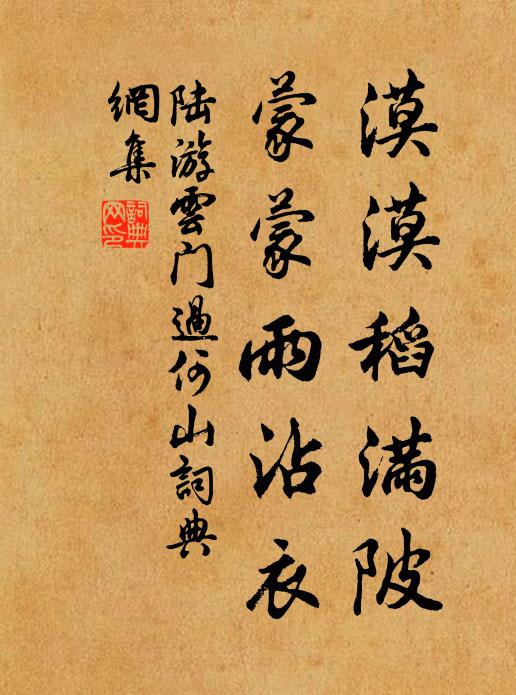 漠漠稻满陂
蒙蒙雨沾衣
陆游雲门過何山詞典
網集
詞典
网印